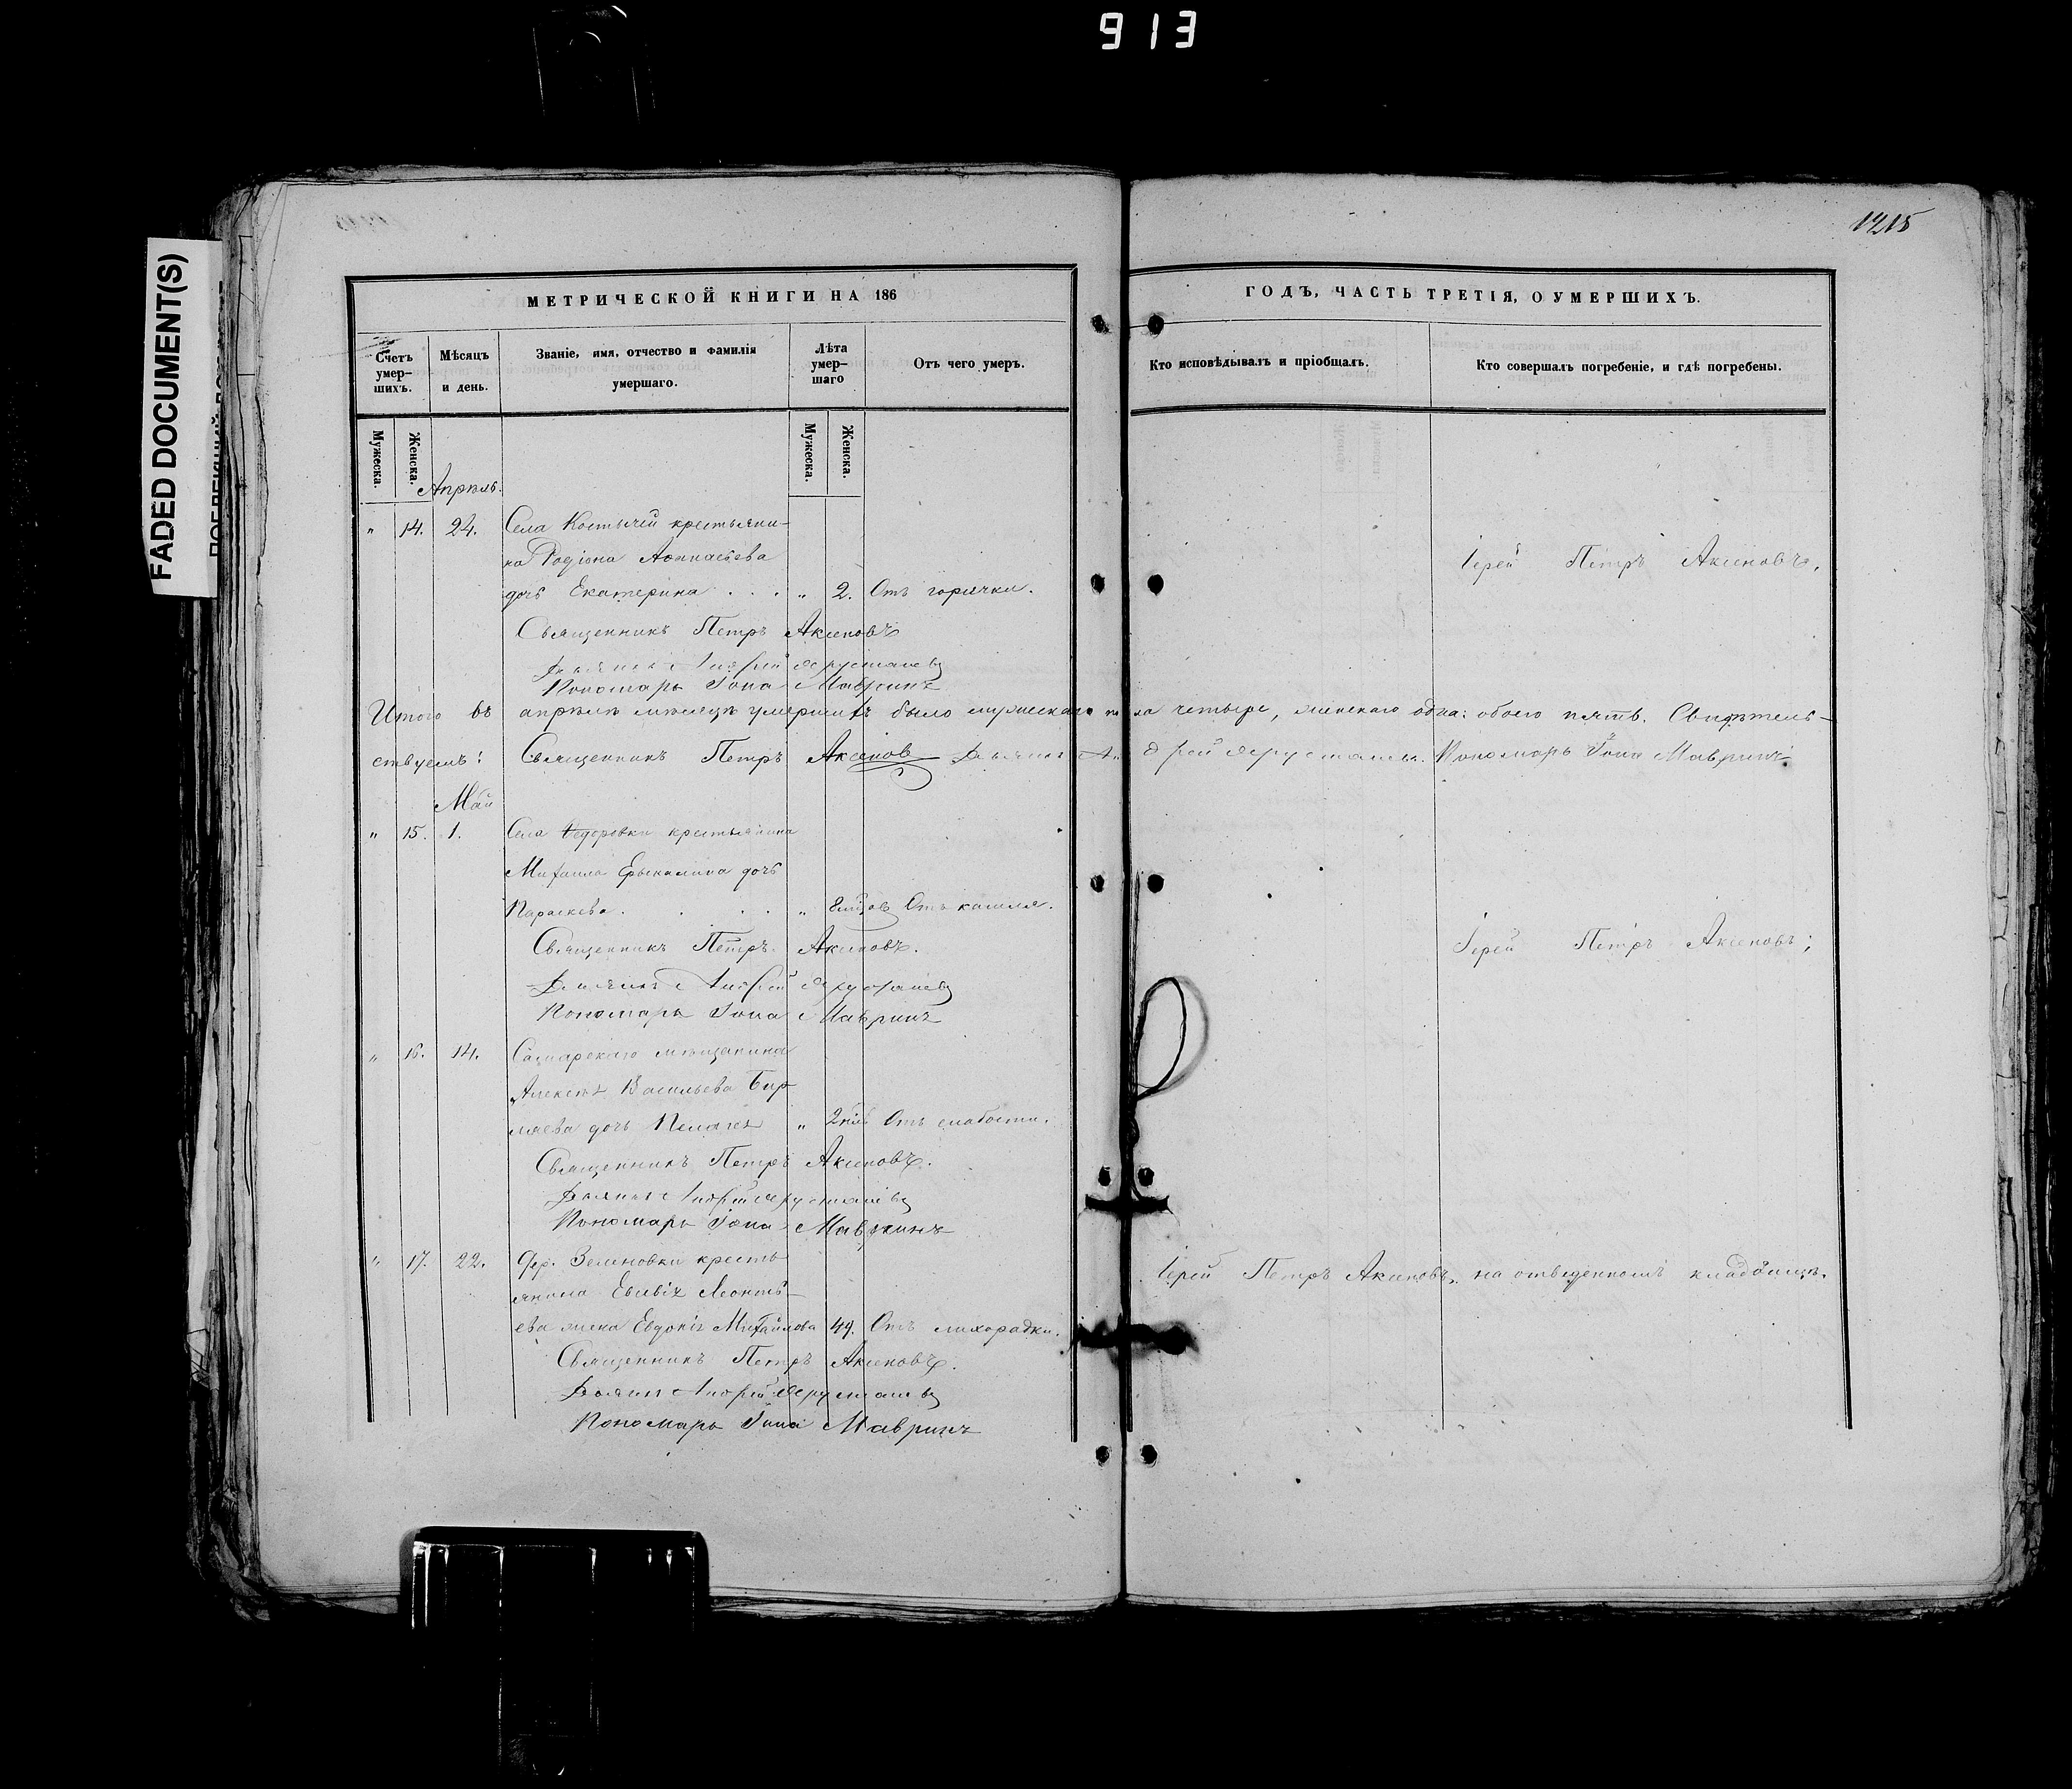 913
FADED DOCUMENT(S)
1215
МЕТРИЧЕСКОЙ КНИГИ НА 186
ГОДЪ, ЧАСТЬ ТРЕТІЯ, О УМЕРШИХЪ.
Счетъ умер-шихъ.
Мѣсяцъ и день.
Званіе, имя, отчество и фамилія умершаго.
Лѣта умер-шаго
Отъ чего умеръ.
Кто исповѣдывалъ и пріобщалъ.
Кто совершалъ погребеніе, и гдѣ погребены.
Мужеска.
Женска.
Мужеска.
Женска.
Апрѣль.
" 14. 24. Села Костычей крестьяни-
на Родіона Аѳанасьева
Іерей Петръ Аксеновъ,
дочь Екатерина . . . " 2. Отъ горячки.
Священникъ Петръ Аксеновъ
Дьячекъ Андрей
Пономарь Іона Мавринъ
Итого въ апрѣлѣ мѣсяцѣ умершихъ было мужескаго пола четыре, женскаго одна: обоего пять. Свидѣтель-
ствуемъ: Священникъ Петръ Аксенов Дьячекъ Андрей Пономарь Іона Мавринъ
Май
" 15. 1. Села Ѳедоровки крестьянина
Михаила дочь
Параскева . . . . " 8 Отъ кашля.
Священникъ Петръ Аксеновъ.
Іерей Петръ Аксеновъ;
Дьячекъ Андрей
Пономарь Іона Мавринъ
" 16. 14. Самарскаго мѣщанина
Алексѣя Васильева Бир-
ляева дочь Пелагея " 2 Отъ слабости.
Священникъ Петръ Аксеновъ.
Дьячекъ Андрей
Пономарь Іона Мавринъ
" 17. 22. Дер. Зеленовки кресть-
янина Евсевія Леонть-
Іерей Петръ Аксеновъ, на отведенномъ кладбищѣ.
ева жена Евдокія Михайлова 49. Отъ лихорадки.
Священникъ Петръ Аксеновъ.
Дьячекъ Андрей
Пономарь Іона Мавринъ